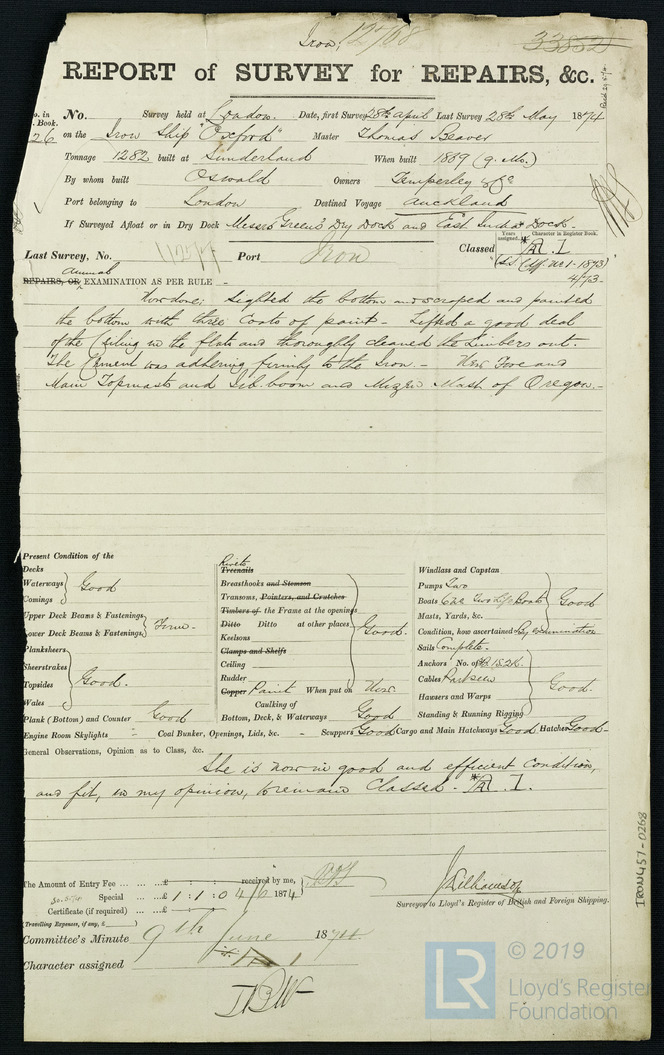 Iron,
33852
REPORT of SURVEY for REPAIRS, &c.
No. Survey held at London. Date, first Survey 28th April Last Survey 28th May 1874
o. in Book. 26 on the Iron Ship "Oxford" Master Thomas Beaver
Tonnage 1282 built at Sunderland When built 1869 (9. Mo.)
By whom built Oswald Owners Temperley & Co
Port belonging to London Destined Voyage Auckland
If Surveyed Afloat or in Dry Dock Messrs Green's Dry Dock and East India Dock.
Years assigned. Character in Register Book.
Last Survey, No. Port Iron Classed A 1
4/73
Annual
REPAIRS, OR EXAMINATION AS PER RULE
Now done; Sighted the bottom and scraped and painted
the bottom with three Coats of paint - Lifted a good deal
of the Ceiling in the flats and thoroughly cleaned the Limbers out.
The Cement was adhering firmly to the Iron. - New Fore and
Main Topmasts and Jib-boom and Mizen Mast of Oregon. -
Present Condition of the
Decks
Waterways
Comings
Good
Upper Deck Beams & Fastenings
Lower Deck Beams & Fastenings
Firm -
Planksheers
Sheerstrakes
Topsides
Wales
Good.
Plank (Bottom) and Counter Good
Engine Room Skylights - Coal Bunker, Openings, Lids, &c. - Scuppers Good Cargo and Main Hatchways Good Hatches Good -
Rivets
Treenails
Breasthooks and Stemson
Transoms, Pointers, and Crutches
Timbers of the Frame at the openings
Ditto Ditto at other places
Keelsons
Clamps and Shelfs
Ceiling
Rudder
Good.
Copper Paint When put on New
Caulking of
Bottom, Deck, & Waterways Good
Windlass and Capstan
Pumps Two
Boats
Masts, Yards, &c.
Good
Condition, how ascertained By examination
Sails Complete.
Anchors No. of
Cables
Hawsers and Warps
Standing & Running Rigging
Good.
General Observations, Opinion as to Class, &c.
She is now in good and efficient Condition,
and fit, in my opinion, to remain Classed. A 1.
The Amount of Entry Fee ... ... ...£ received by me,
Special ... ...£ 1 : 1 : 0 4/6 1874
Certificate (if required) ...£
(Travelling Expenses, if any, £ )
Surveyor to Lloyd's Register of British and Foreign Shipping.
Committee's Minute 9th June 1874
Character assigned A 1
IRON457-0268
LR
© 2019
Lloyd's Register
Foundation